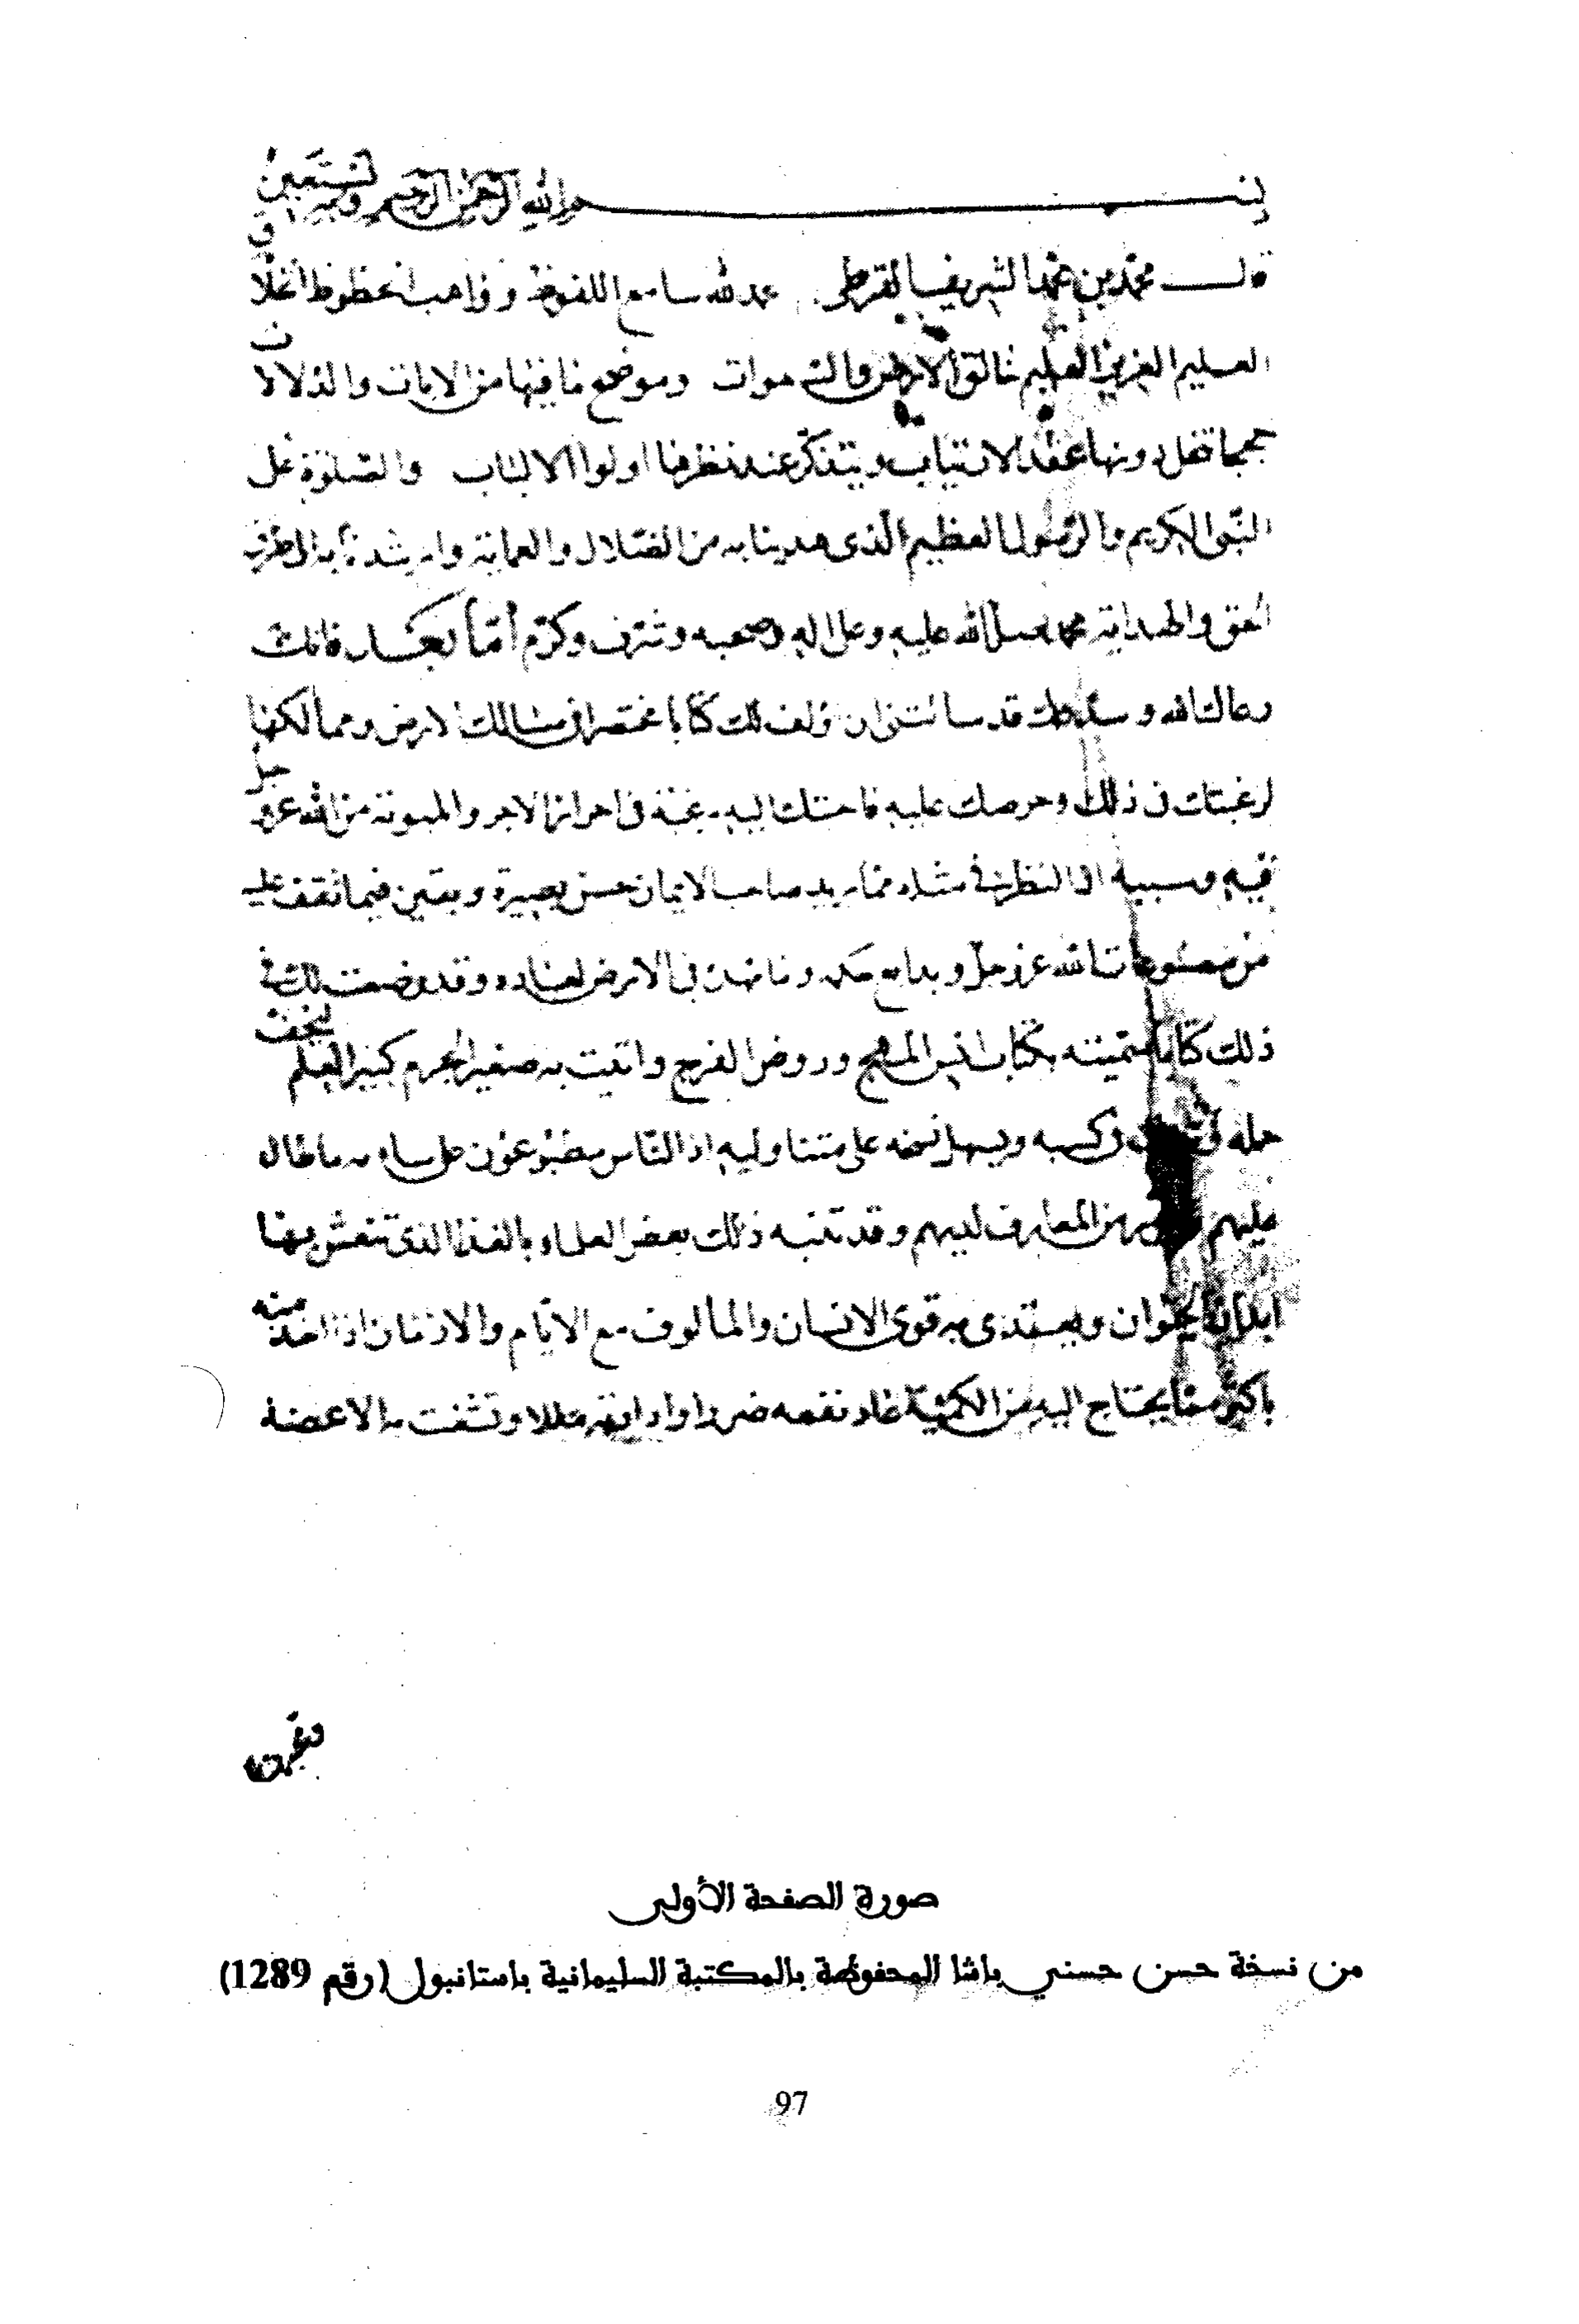 بسم الله الرحمن الرحيم وبه نستعين
قال محمد بن محمد الشريف القرطبي حمد لله سامع اللفوظ وواهب الحظوظ الخلاق
العليم العزيز العليم خالق الارض والسموات وموضح ما فيها من الايات والدلالات
حججا تنحل دونها عقد الارتياب ويتذكر عند نظرها اولوا الالباب والصلوة على
النبى الكريم والرسول العظيم الذى هدينا به من الضلال والعماية وارشدنا به الى طريق
الحق والهداية محمد صلى الله عليه وعلى اله وصحبه وشرف وكرم أما بعد فانك
رعاك الله وسددك قد سالتنى ان اولف لك كتابا مختصرا فى مسالك الارض وممالكها
لرغبتك فى ذلك وحرصك عليه فاجبتك اليه رغبة فى احراز الاجر والمبوتة من الله عز وجل
فيه وسببه اذ النظر فى مثله مما يزيد صاحب الايمان حسن بصيرة ويقين فيما تقف عليه
من مصنوعات الله عز وجل وبدايع حكمه وما فى الارض لعباده وقد وضعت لك فى
ذلك كتابا سميته بكتاب انس المهج وروض الفرج واتيت به صغير الجرم كبير العلم ليخف
حمله ويسهل نسخه على متناوليه اذ الناس مطبوعون على سامة ما طال
عليهم من المعارف لديهم وقد شبه ذلك بعض العلماء بالغذا الذى تنتعش به
ابدان الحيوان و يغتذى به قوى الانسان والمالوف مع الايام والازمان اذا اخذ منه
باكثر مما يحتاج اليه من الكمية عاد نفعه ضررا الاعضة
صورة الصفحة الأولى
من نسخة حسن حسني باشا المحفوظة بالمكتبة السليمانية باستانبول (رقم 1289)
97